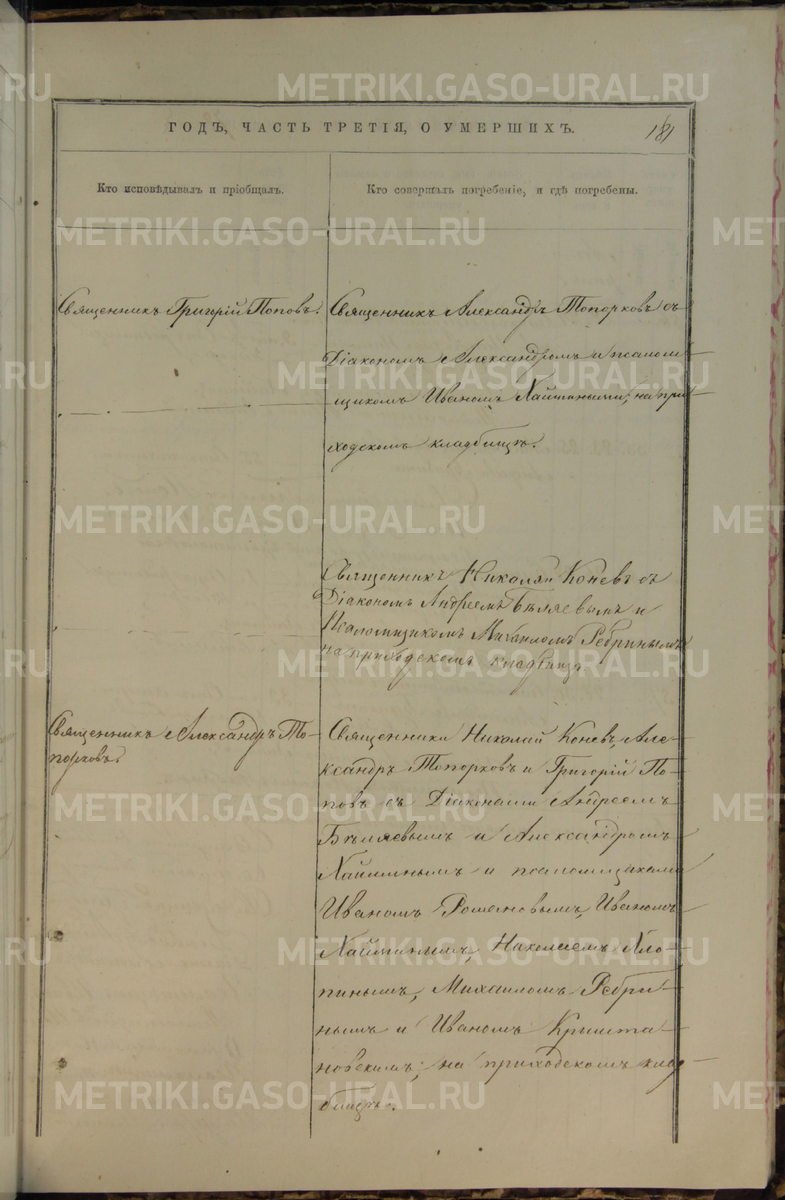 METRIKI.GASO-URAL.RU
ГОДЪ, ЧАСТЬ ТРЕТІЯ, О УМЕРШИХЪ.
181
Кто исповѣдывалъ и пріобщалъ.
Кто совершалъ погребеніе, и гдѣ погребены.
Священникъ Григорій Поповъ.
Священникъ Александръ Топорковъ съ
Діакономъ Александромъ и псалом-
щикомъ Иваномъ Хаймиными, на при-
ходскомъ кладбищѣ.
Священникъ Николай Коневъ съ
Діакономъ Андреемъ Бѣляевымъ и
Псаломщикомъ Михаиломъ Ребринымъ
на приходскомъ кладбищѣ
Священникъ Александръ То-
порковъ.
Священники Николай Коневъ, Але-
ксандръ Топорковъ и Григорій По-
повъ съ Діаконами Андреемъ
Бѣляевымъ и Александромъ
Хайминымъ и псаломщиками
Иваномъ Романовымъ, Иваномъ
Хайминымъ, Николаемъ Хло-
пинымъ, Михаиломъ Ребри-
нымъ и Иваномъ
на приходскомъ клад-
бищѣ.